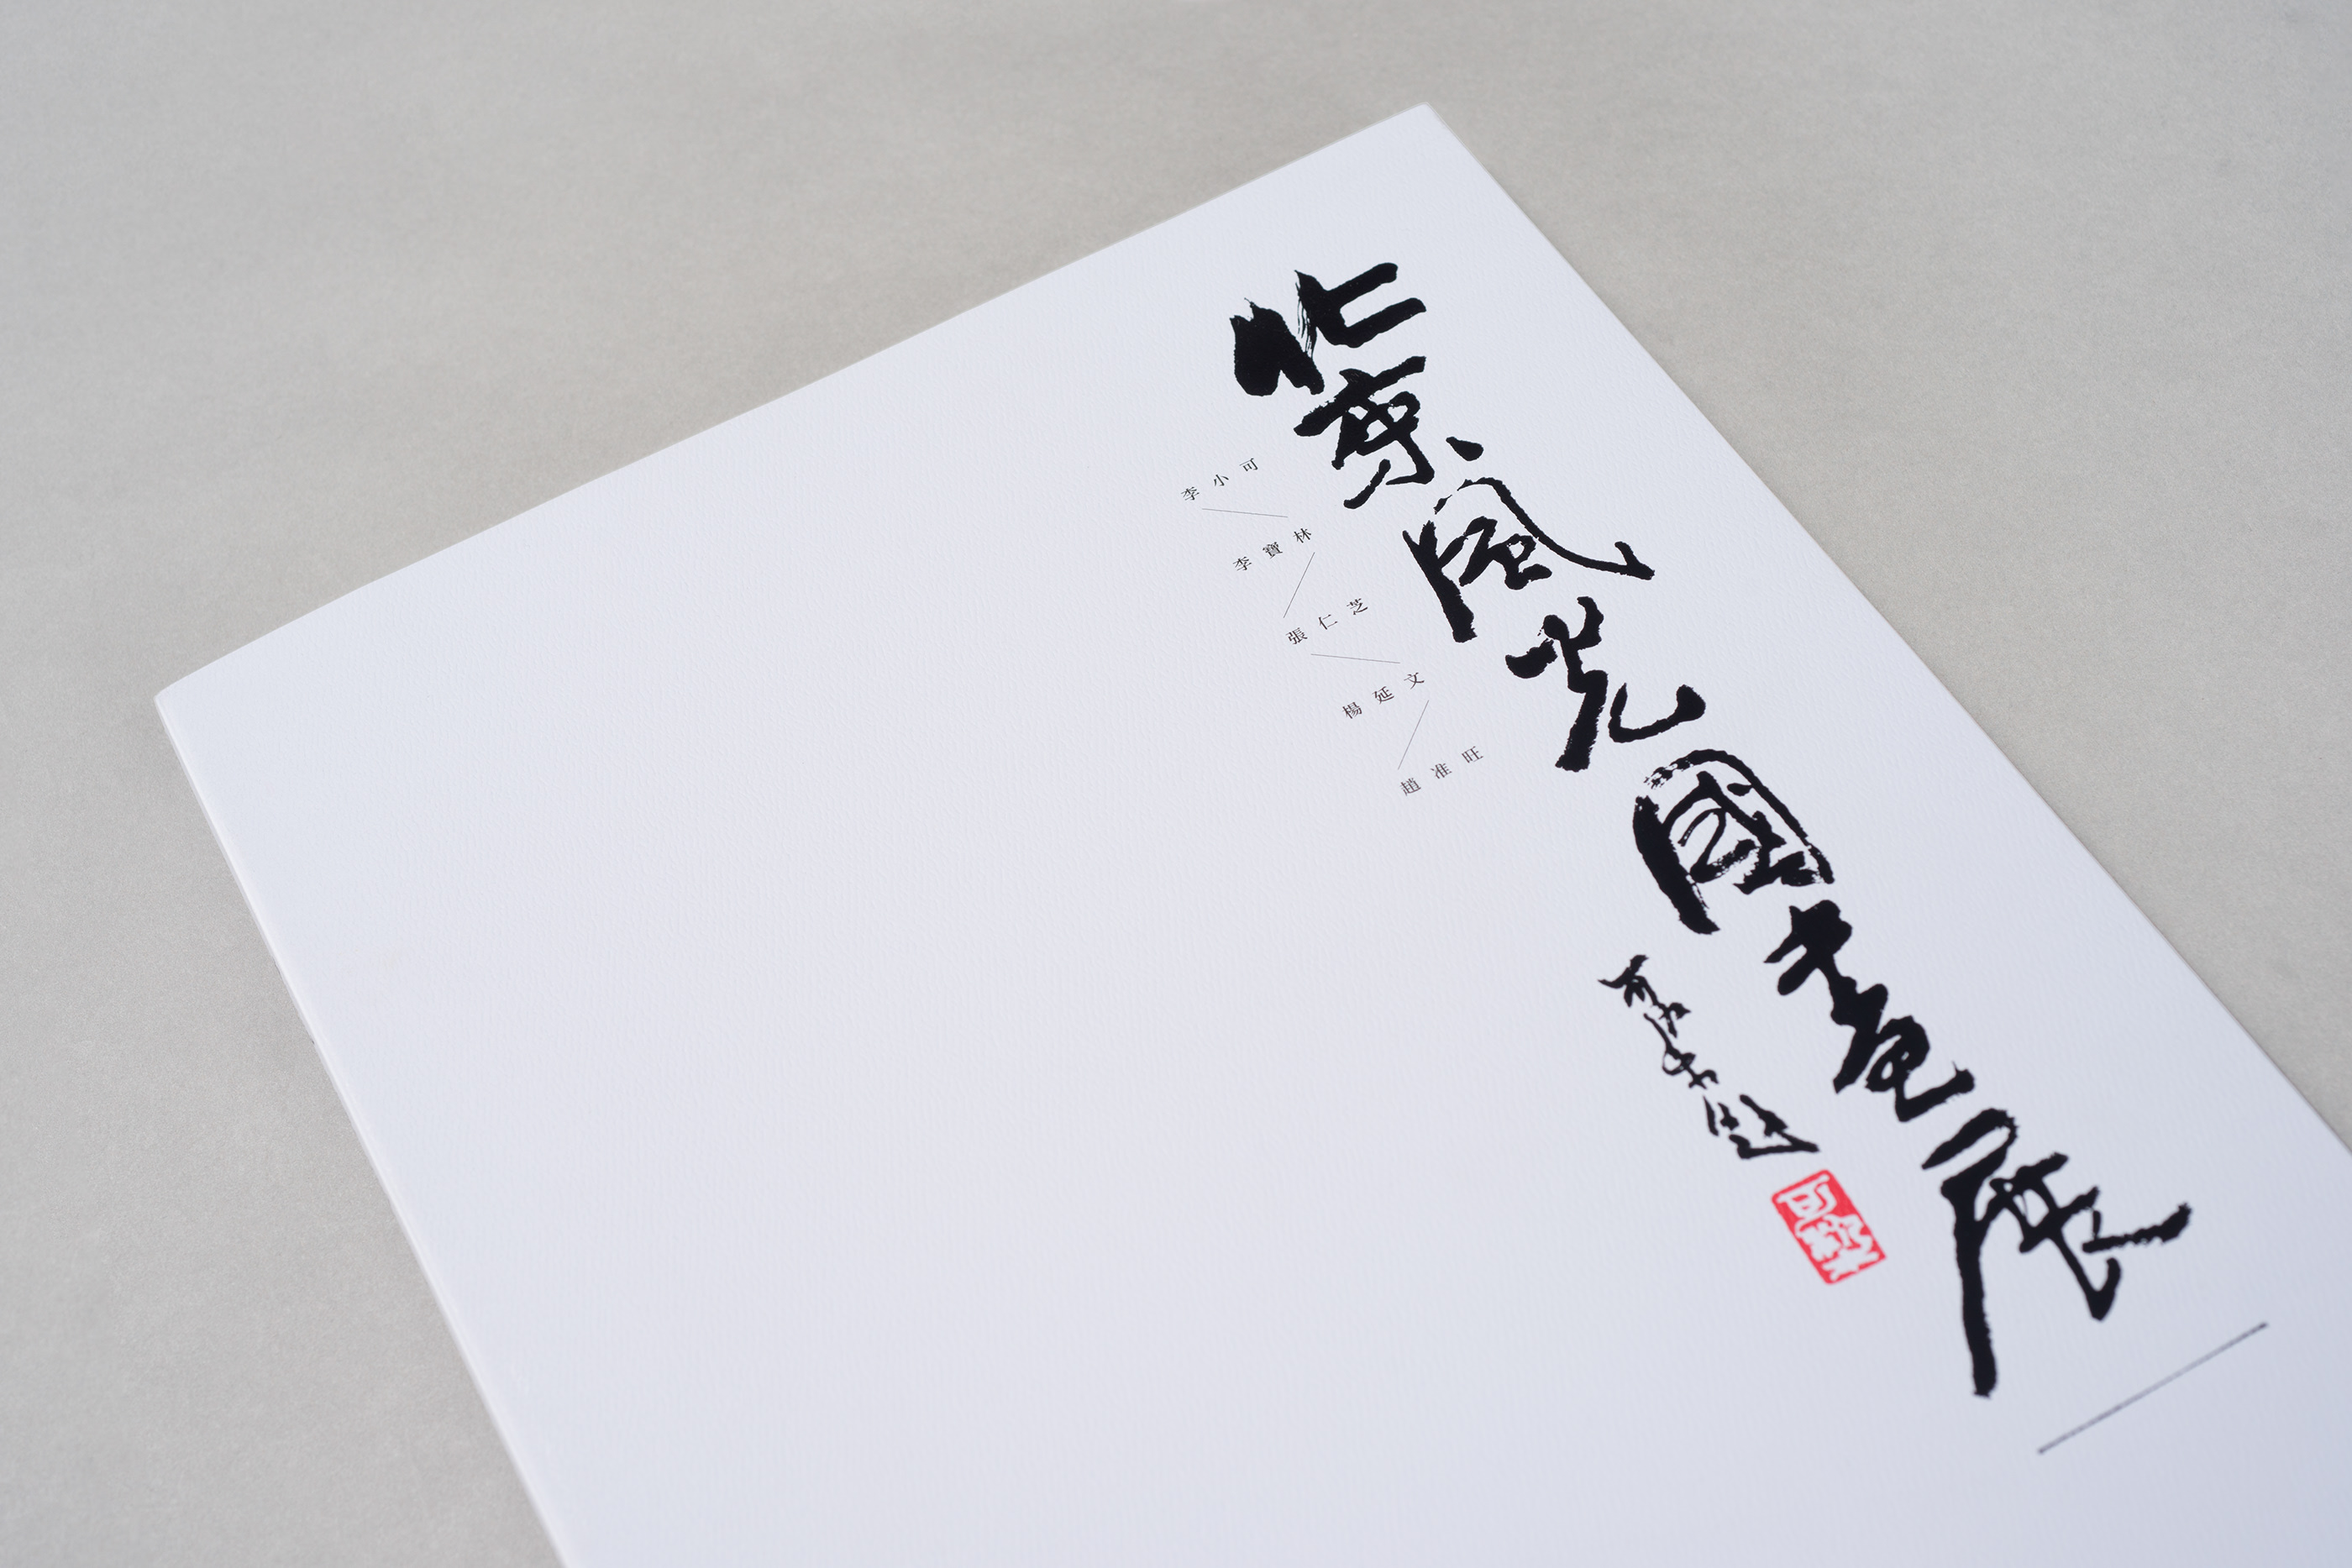 北京風光國畫展
李小可
李寶林
張仁芝
楊延文
趙准旺